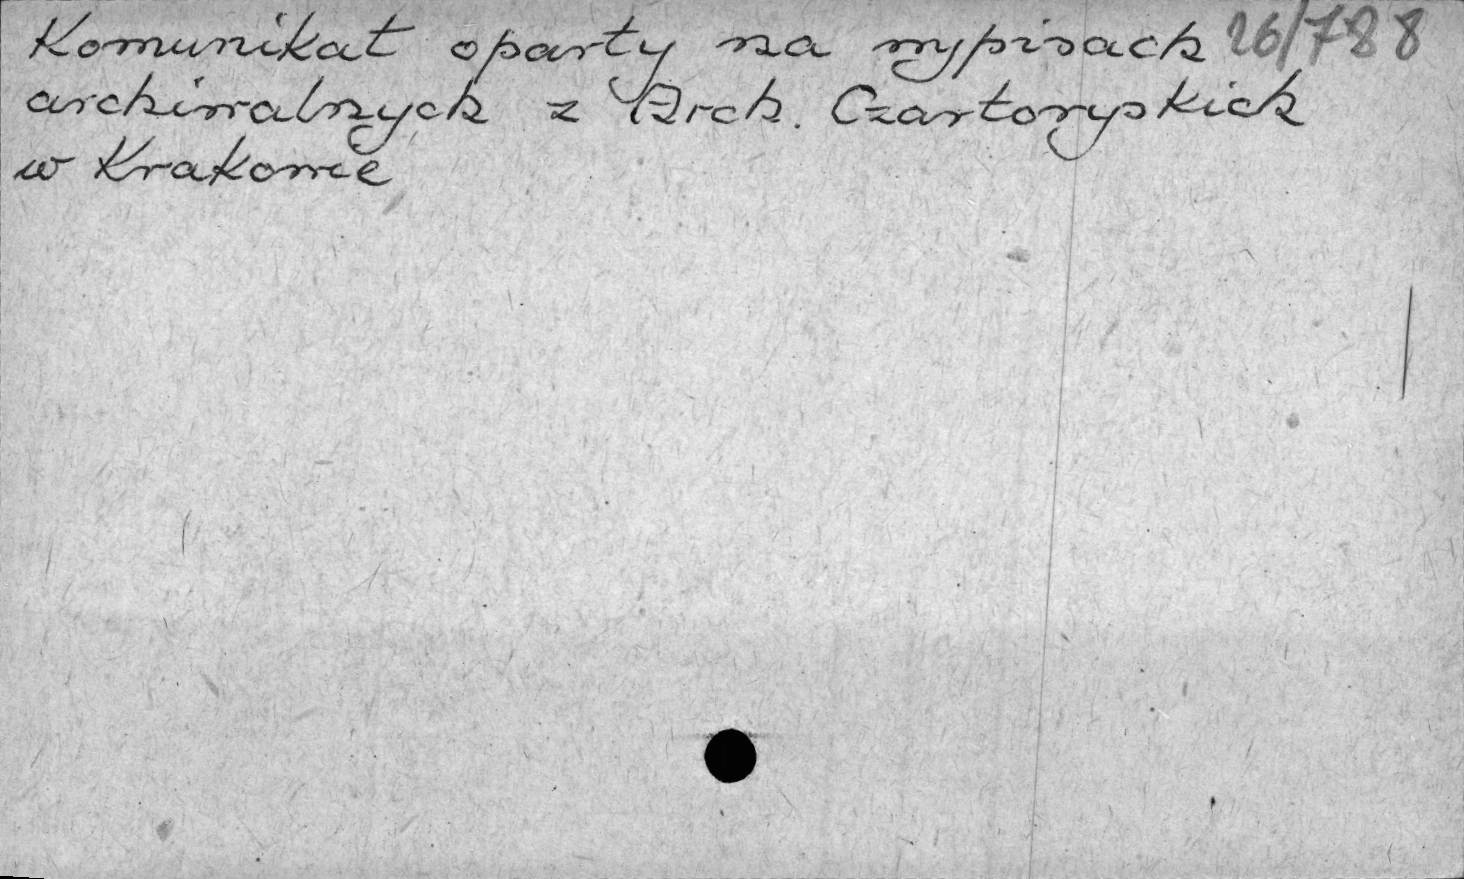 Komunikat oparty na wypisach 26/788
archiwalnych z Arch. Czartoryskich
w Krakowie